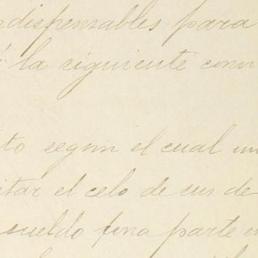 ndispensables para
la ciguiente com
to segun el cual un
itar el celo de sus de
sueldo fina parte